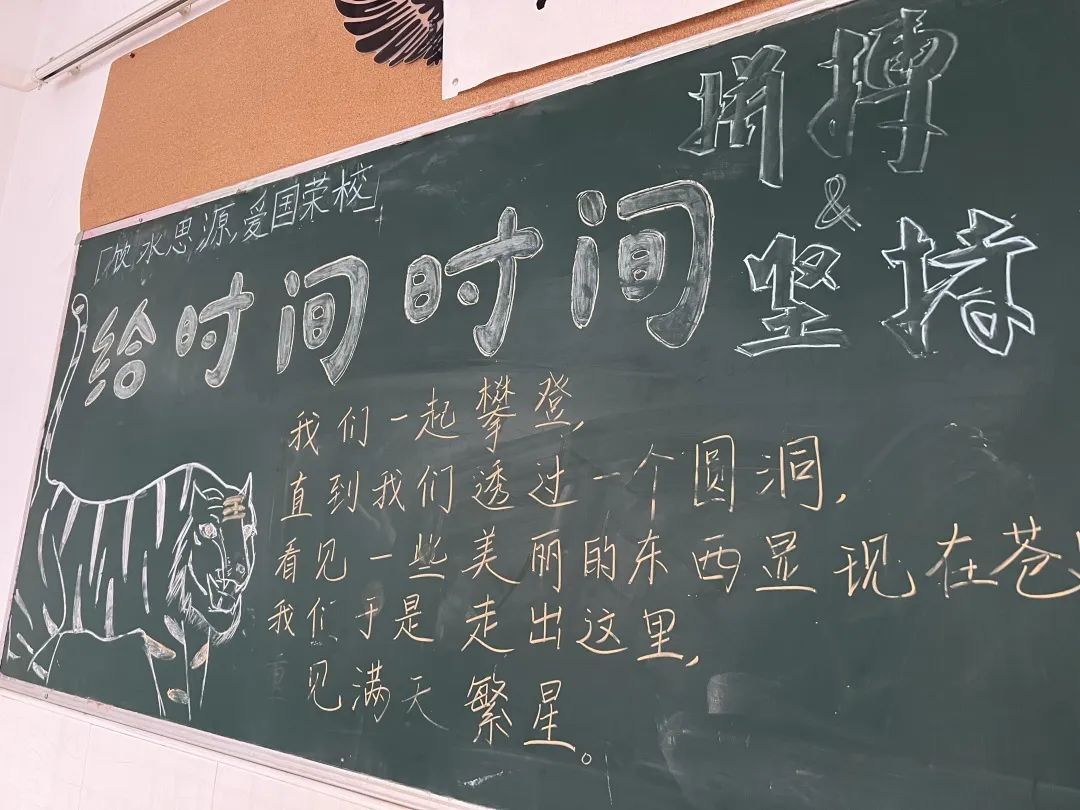 「饮水思源,爱国荣校」
给时间时间
拼搏
&
坚持
我们一起攀登,
直到我们透过一个圆洞,
看见一些美丽的东西显现在苍
我们于是走出这里,
重见满天繁星。
王